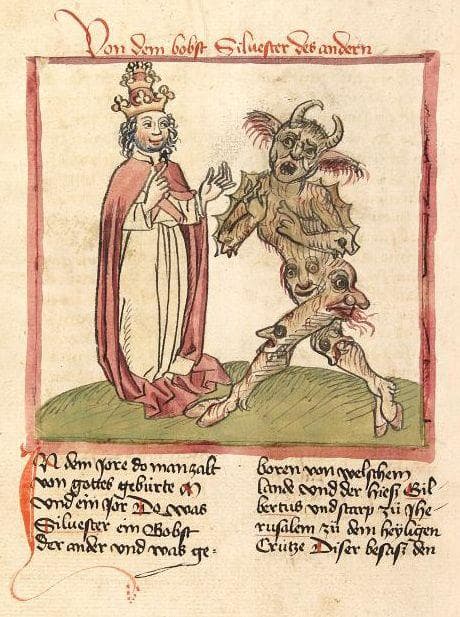 Von dem bobst Siluester des andern
In dem Jore do man zalt
von gottes gebürte M
vnd ein Jor Do was
Siluester ein Bobst
der ander vnd was ge⸗
boren von welschem
lande vnd der hiess Gil⸗
bertus vnd starp zü Jhe⸗
rusalem zü dem heyligen
Crütze Diser besass den